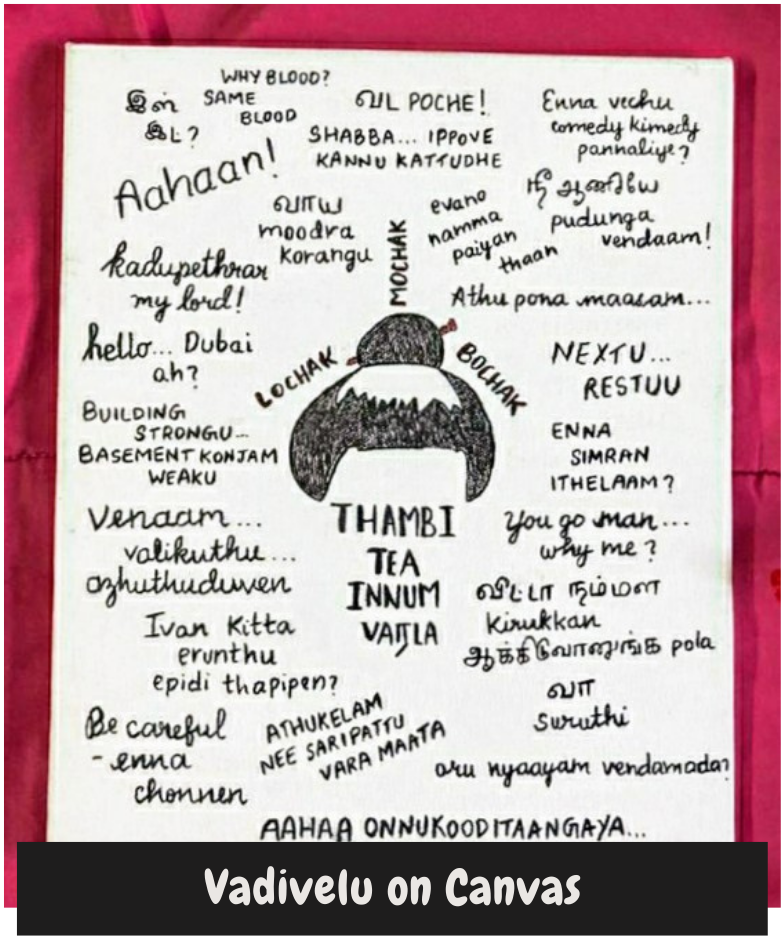 WHY BLOOD?
SAME
BLOOD
வட POCHE!
Enna vechu
comedy kimedy
pannaliye?
SHABBA... IPPOVE
KANNU KATTUDHE
Aahaan!
நீ ஆணியே
pudunga
vendaam!
வாய
moodra
korangu
evano
namma
paiyan
thaan
MOCHAK
kadupethrar
my lord!
Athu pona maasam...
hello... Dubai
ah?
LOCHAK
BOCHAK
NEXTU...
RESTUU
BUILDING
STRONGU...
BASEMENT KONJAM
WEAKU
ENNA
SIMRAN
ITHELAAM?
THAMBI
TEA
INNUM
VARLA
Venaam...
valikuthu...
azhuthuduven
You go man...
why me?
விட்டா நம்மள
Kirukkan
ஆக்கிடுவானுங்க pola
Ivan Kitta
erunthu
epidi thapipen?
வா
Suruthi
Be careful
- enna
chonnen
ATHUKELAM
NEE SARIPATTU
VARA MAATA
oru nyaayam vendamada?
AAHAA ONNUKOODITAANGAYA...
Vadivelu on Canvas